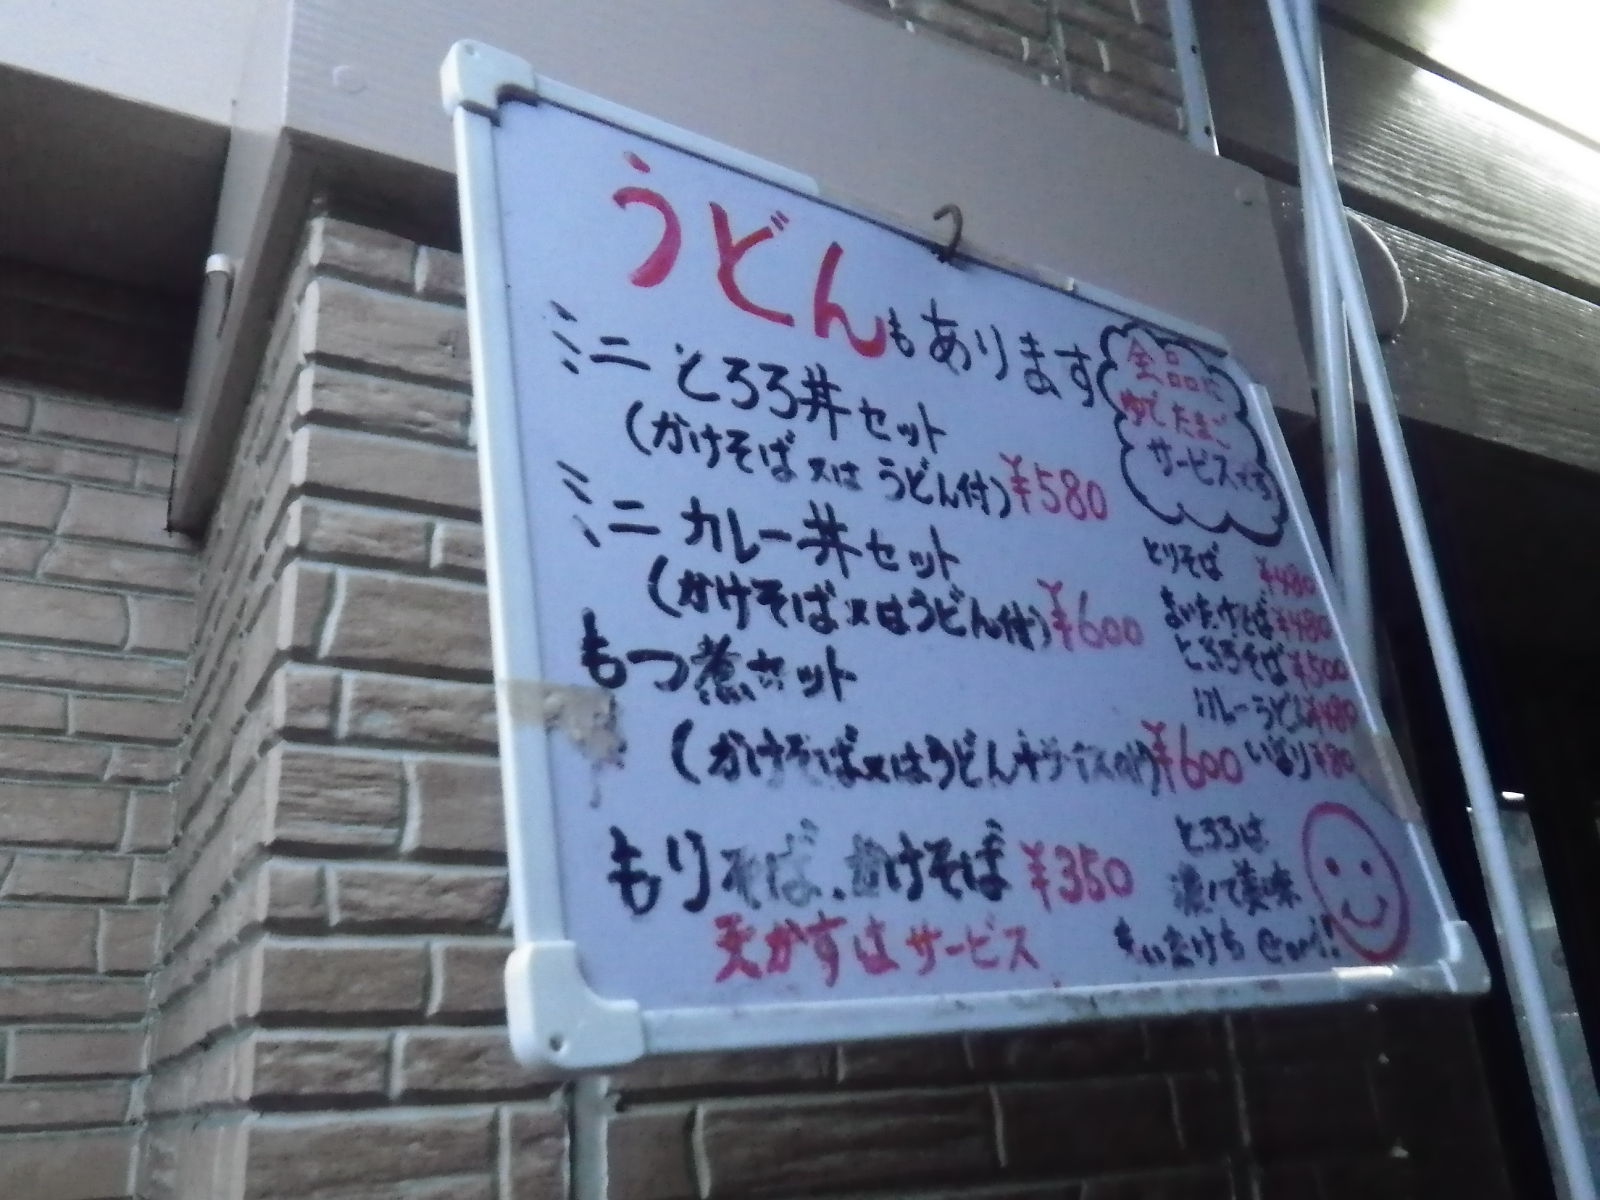 うどんもあります
ミニとろろ丼セット
(かけそば又は うどん付)¥580
ミニカレー丼セット
(かけそば又はうどん付)¥600
もつ煮セット
(かけそば又はうどん ¥600
もりそば、かけそば ¥350
天かすはサービス
全品に
ゆでたまご
サービス
とりそば ¥480
まいたけそば ¥480
とろろそば ¥500
カレーうどん ¥480
いなり ¥80
とろろは
濃くて美味
まいたけも